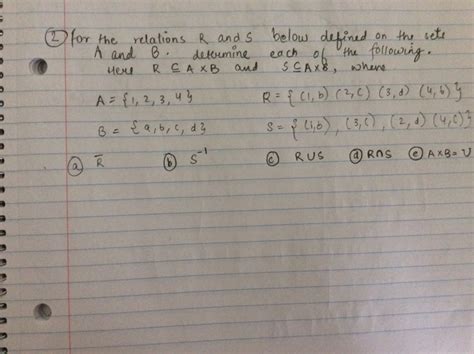 ② for the relations R and S below defined on the sets
A and B. determine each of the following.
Here R ⊆ A×B and S ⊆ A×B, where
A = {1, 2, 3, 4} R = {(1, b) (2, c) (3, d) (4, b)}
B = {a, b, c, d} S = {(1, b), (3, c), (2, d) (4, c)}
ⓐ R̅ ⓑ S⁻¹ ⓒ R∪S ⓓ R∩S ⓔ A×B = U